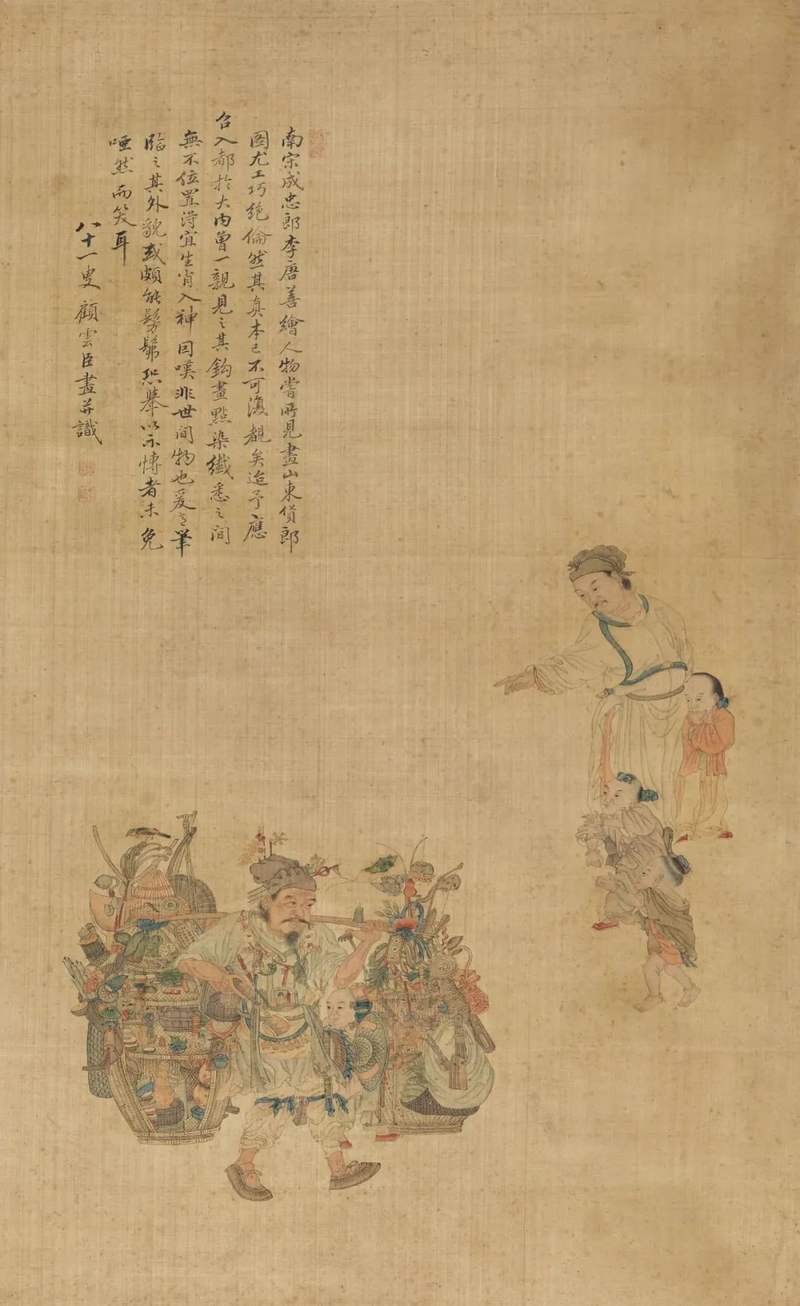 南宗成忠郎李唐善繪人物嘗所見畫山東貨郎
圖尤工巧絕倫然其真本已不可復覩矣迨予應
召入都於大內曾一親見之其鈎畫點染纖悉之間
無不位置得宜生肖入神因嘆非世間物也爰命筆
臨之其外貌或頗能髣髴恐舉以示博者未免
唾然而笑耳
八十一叟顧雲臣畫并識